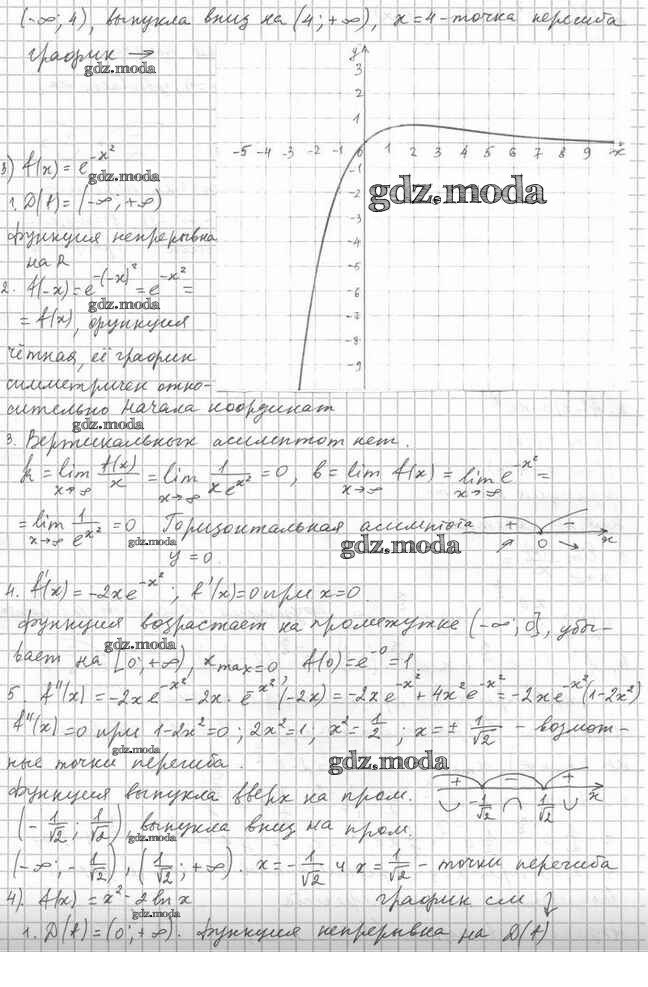 (-∞; 4), выпукла вниз на (4; +∞), x = 4 - точка перегиба
график →
gdz.moda
y
3
2
1
-5 -4 -3 -2 -1 0 1 2 3 4 5 6 7 8 9 x
-1
-2
-3
-4
-5
-6
-7
-8
-9
gdz.moda
3) f(x) = e^{-x²}
gdz.moda
1. D(f) = (-∞; +∞)
функция непрерывна
на R
2. f(-x) = e^{-(-x)²} = e^{-x²} =
gdz.moda
= f(x), функция
чётная, её график
симметричен отно-
сительно начала координат
gdz.moda
3. Вертикальных асимптот нет.
k = lim_{x→∞} f(x)/x = lim_{x→∞} 1/(x e^{x²}) = 0, b = lim_{x→∞} f(x) = lim_{x→∞} e^{-x²} =
= lim_{x→∞} 1/e^{x²} = 0 Горизонтальная асимптота
gdz.moda
y = 0.
gdz.moda
+ - 0 x
4. f'(x) = -2xe^{-x²}; f'(x) = 0 при x = 0.
функция возрастает на промежутке (-∞; 0], убы-
gdz.moda
вает на [0; +∞), x max = 0, f(0) = e^{-0} = 1.
5 f''(x) = -2xe^{-x²} - 2x · e^{-x²}(-2x) = -2xe^{-x²} + 4x²e^{-x²} = -2xe^{-x²}(1-2x²)
f''(x) = 0 при 1-2x² = 0; 2x² = 1; x² = 1/2; x = ± 1/√2 - возмож-
gdz.moda
ные точки перегиба.
gdz.moda
функция выпукла вверх на пром.
+ - + -1/√2 1/√2 x
(-1/√2; 1/√2), выпукла вниз на пром.
gdz.moda
(-∞; -1/√2), (1/√2; +∞). x = -1/√2 и x = 1/√2 - точки перегиба
4). f(x) = x² - 2 ln x график см ↓
gdz.moda
1. D(f) = (0; +∞). функция непрерывна на D(f)